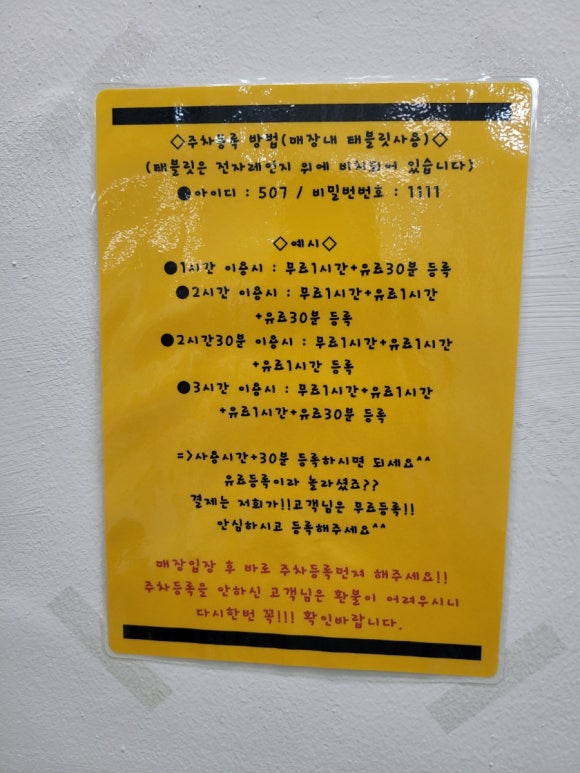 ◇주차등록 방법(매장내 태블릿사용)◇
(태블릿은 전자레인지 위에 비치되어 있습니다)
●아이디 : 507 / 비밀번번호 : 1111
◇예시◇
●1시간 이용시 : 무료1시간+유료30분 등록
●2시간 이용시 : 무료1시간+유료1시간
+유료30분 등록
●2시간30분 이용시 : 무료1시간+유료1시간
+유료1시간 등록
●3시간 이용시 : 무료1시간+유료1시간
+유료1시간+유료30분 등록
=>사용시간+30분 등록하시면 되세요^^
유료등록이라 놀라셨죠??
결제는 저희가!!고객님은 무료등록!!
안심하시고 등록해주세요^^
매장입장 후 바로 주차등록먼저 해주세요!!
주차등록을 안하신 고객님은 환불이 어려우시니
다시한번 꼭!!! 확인바랍니다.